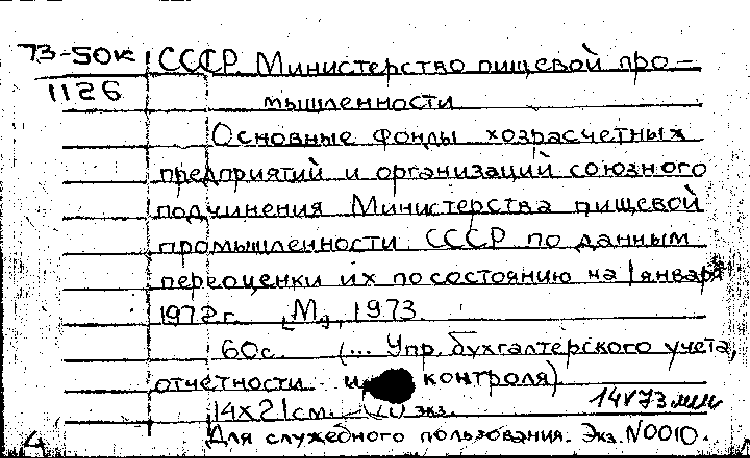 73-50к СССР. Министерство пищевой про-
1126 мышленности
Основные фонды хозрасчетных
предприятий и организаций союзного
подчинения Министерства пищевой
промышленности СССР по данным
переоценки их по состоянию на 1 января
1972 г. [М., 1973.
60с. (... Упр. бухгалтерского учета,
отчетности и контроля)
14x21 см. экз.
Для служебного пользования. Экз. N0010.